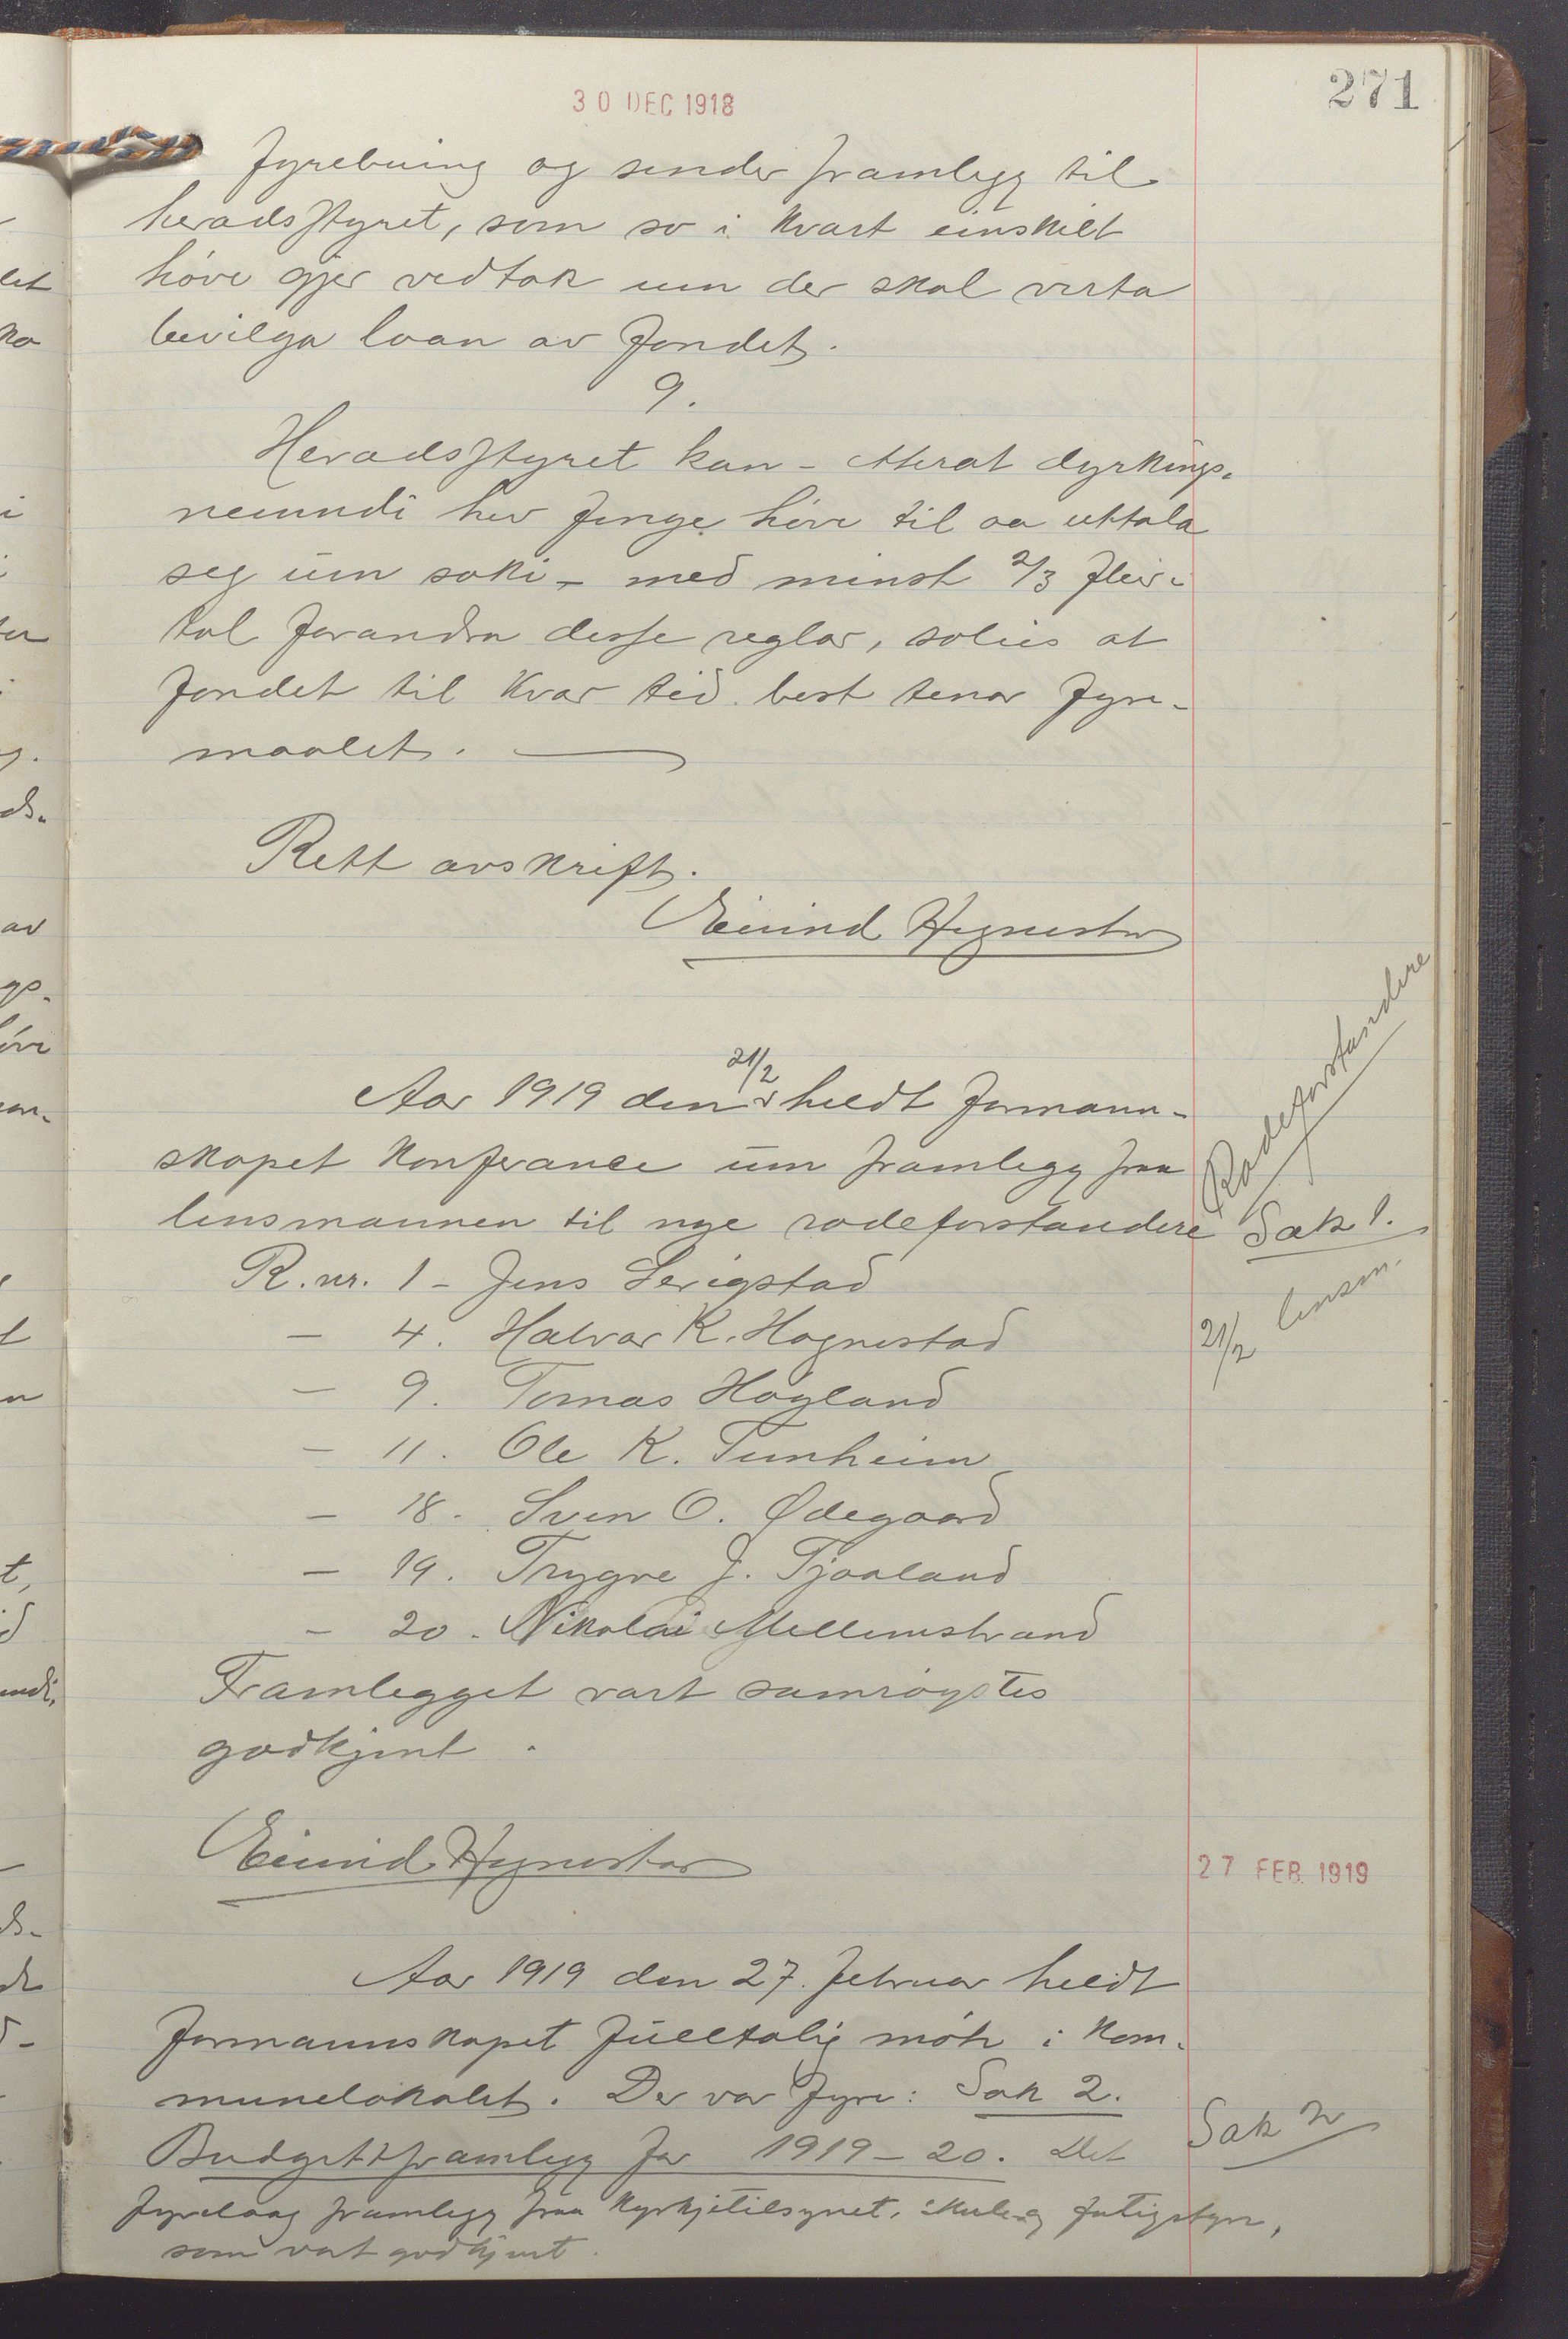 271
30 DEC 1918
fyrebuing og sender framlegg til
heradsstyret, som so i kvart einskilt
høve gjer vedtak um der skal verta
bevilga laan av fondet.
9.
Heradsstyret kan - etterat dyrkings-
nemndi hev fenge høve til aa uttala
seg um saki - med minst 2/3 fleir-
tal forandra desse reglar, soleis at
fondet til kvar tid best tener fyre-
maalet.
Rett avskrift.
Eivind Hognestad
Aar 1919 den 21/2 heldt formann-
skapet konferance um framlegg fraa
lensmannen til nye rodeforstandere
Rodeforstandere
Sak 1.
21/2 lensm.
R. nr. 1 - Jens Serigstad
- 4. Halvar K. Hognestad
- 9. Tomas Høyland
- 11. Ole K. Tunheim
- 18. Sven O. Ødegaard
- 19. Trygve J. Tjaaland
- 20. Nikolai Mellemstrand
Framlegget vart samrøystes
godkjent.
Eivind Hognestad
27 FEB. 1919
Aar 1919 den 27. februar heldt
formannskapet fulltalig møte i kom-
munelokalet. Der var fyre: Sak 2.
Sak 2
Budgettframlegg for 1919-20. Det
fyrelaag framlegg fraa kyrkjetilsynet, skule og fatigstyre,
som vart godkjent.